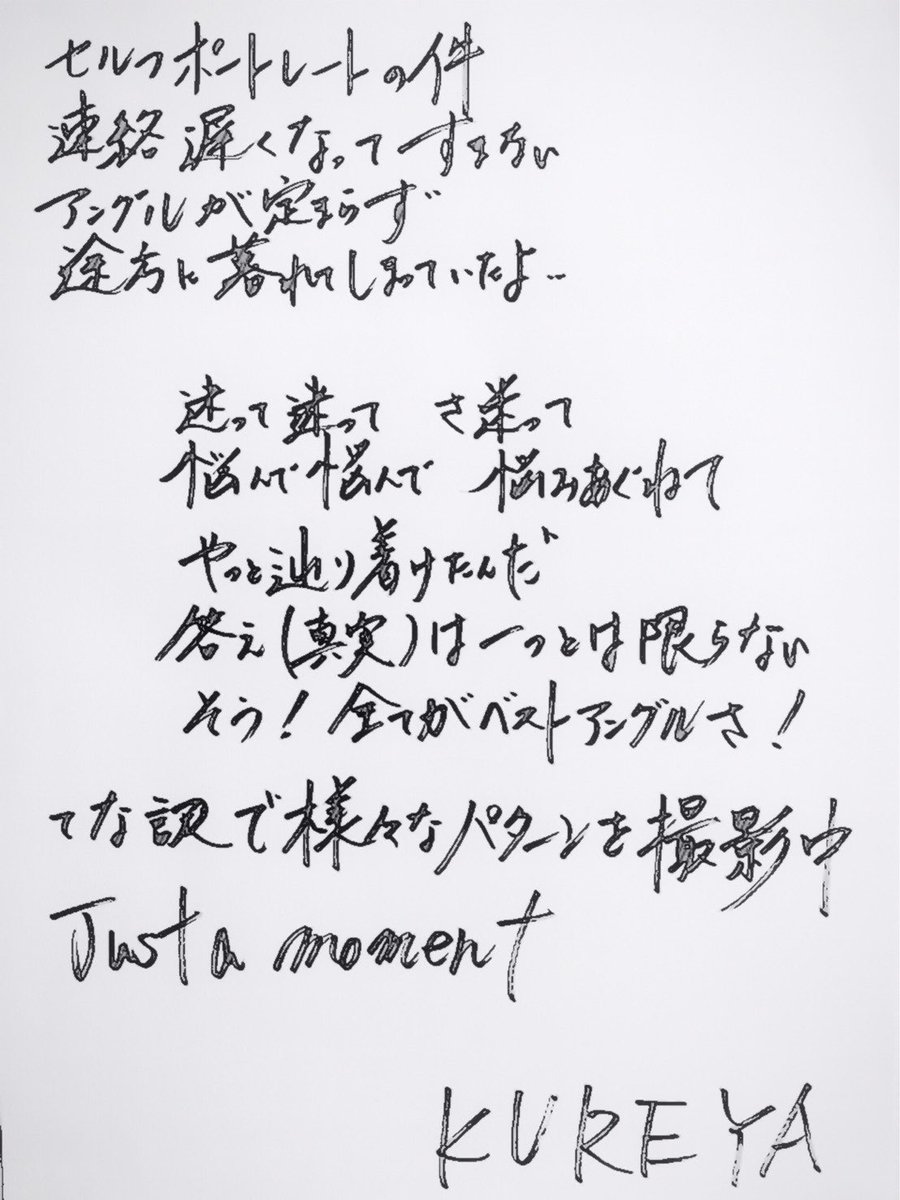 セルフポートレートの件
連絡遅くなってすまない
アングルが定まらず
途方に暮れてしまっていたよ‥
迷って迷って さ迷って
悩んで悩んで 悩みあぐねて
やっと辿り着けたんだ
答え(真実)は一つとは限らない
そう!全てがベストアングルさ!
てな訳で様々なパターンを撮影中
Just a moment
KUREYA